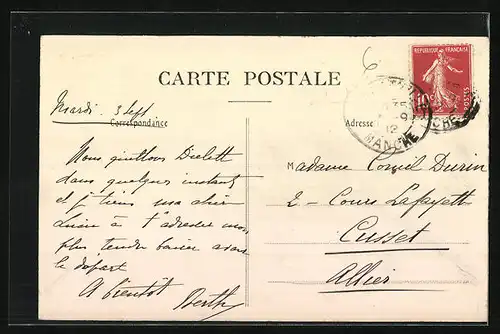 6
REPUBLIQUE FRANÇAISE
10
POSTES
CARTE POSTALE
Mardi 3 Sept.
Correspondance
Adresse
9
12
MANCHE
CHE
Nous quittons Dielett
dans quelques instants
et je tiens ma chère
à t'adresser mon
plus tendre baiser avant
le départ
A bientôt
Berthe
Madame Durin
2 - Cours Lafayette
Cusset
Allier